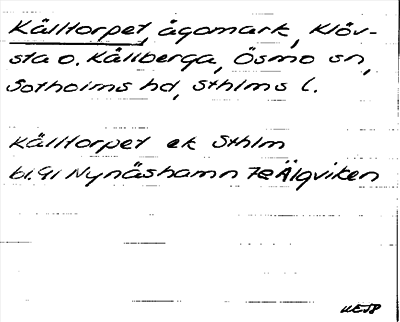 Källtorpet, ägomark, Klöv-
sta o. Källberga, Ösmo sn,
Sotholms hd, Sthlms l.
Källtorpet ek Sthlm
bl.91 Nynäshamn 7e Älgviken